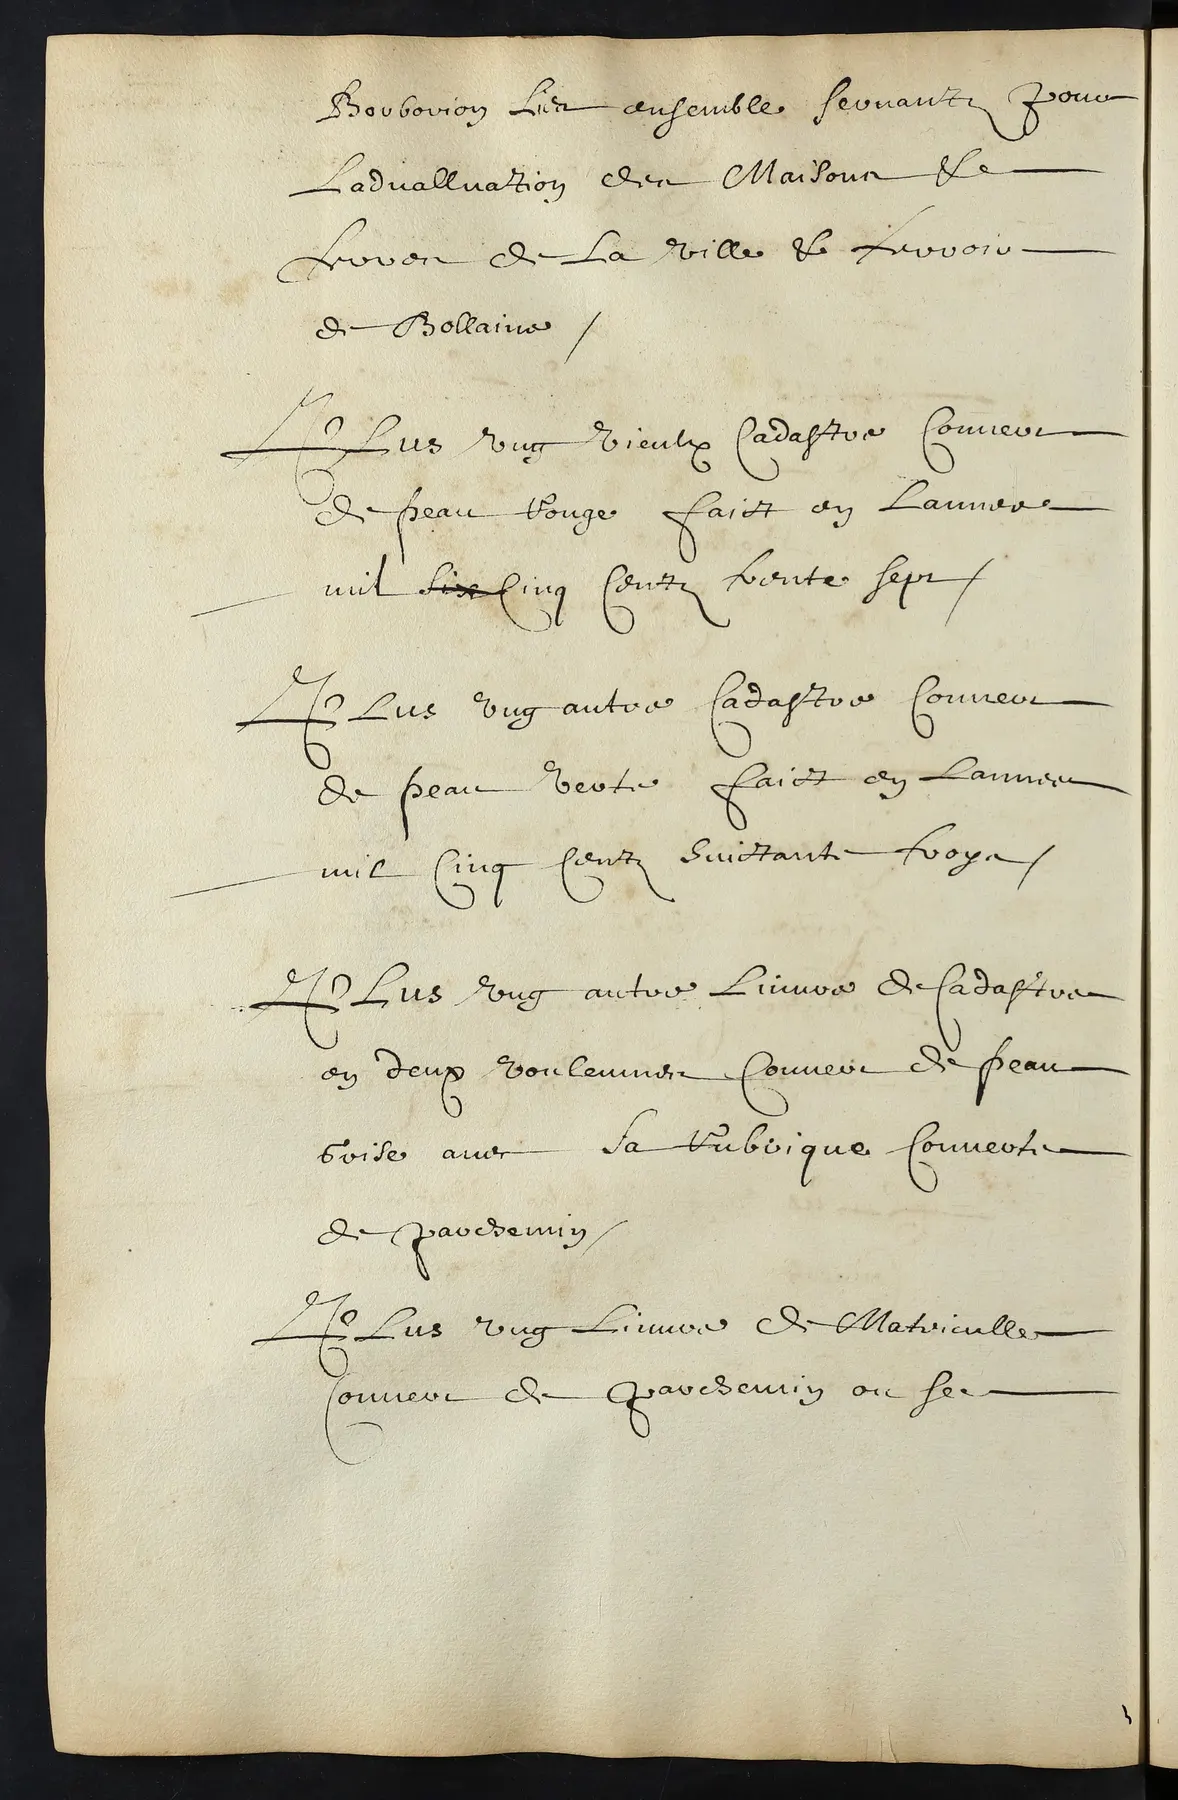 Borborion Liés ensemble servantz pour
Ladvalluation des Maisons &
terres de La ville & terroir
de Bollaine /
PLus ung vieulx Cadastre Couvert
de peau Rouge faict en Lannee
mil six Cinq Centz trente sept /
PLus ung autre Cadastre Couvert
de peau verte faict en Lannee
mil Cinq Centz huictante troys /
PLus ung autre Livvre de Cadastre
en deux voulemmes Couvert de peau
Grise avec sa Rubrique Couverte
de parchemin /
PLus ung Livvre de Matriculle
Couvert de parchemin ou se